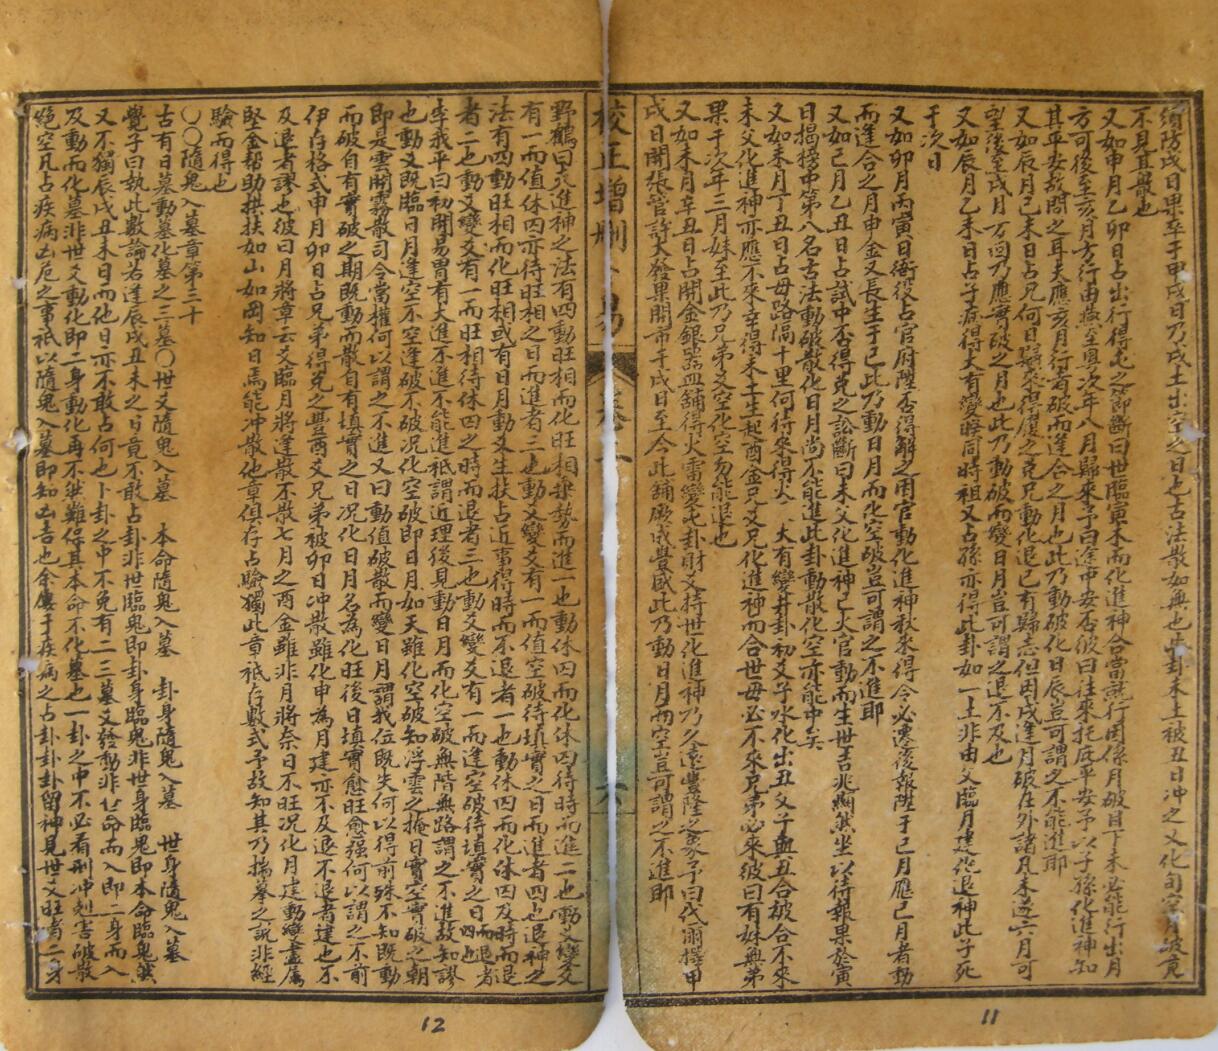 須防戌日果卒于甲戌日乃戌土出空之日也古法散如無也此卦未土被丑日冲之又化旬空月破竟
不見其散也
又如申月乙卯日占出行得屯之節斷曰世臨寅木而化進神合當就行因係月破目下未必能行出月
方可後至亥月方行由燕至粵次年八月歸來予曰途中安否彼曰往來托庇平安予以子孫化進神知
其平安故問之耳夫應亥月行者破而逢合之月也此乃動破化日辰豈可謂之不能進耶
又如辰月己未日占兄何日歸來得履之兌兄動化退已有歸志但因戌逢月破在外諸凡未遂六月可
望後至戌月方回乃應實破之月也此乃動破而變日月豈可謂之退不及也
又如辰月乙未日占子病得大有變睽同時祖又占孫亦得此卦如一上非由父臨月建化退神此子死
于次日
又如卯月丙寅日衙役占官府陞否得解之困官動化進神秋來得令必還後報陞于己月應己月者動
而逢合之月申金又長生于巳此乃動日月而化空破豈可謂之不進耶
又如己月乙丑日占試中否得兌之訟斷曰未父化進神巳火官動而生世吉兆顯然坐以待報果於寅
日揭榜中第八名古法動破散化日月尚不能進此卦動散化空亦能中矣
又如未月丁丑日占母路隔十里何待來得火 大有變井卦初爻子水化出丑父子與丑合被合不來
未父化進神亦應不來幸得未土生起酉金兄爻兄化進神而合世母必不來兄弟必來彼曰有妹無弟
果于次年三月妹至此乃兄弟爻空化空勿能退也
又如未月辛丑日占開金銀器皿舖得火雷變此卦財爻持世化進神乃久遠豐隆之象予曰代爾擇甲
戌日開張管許大發果開市于戌日至今此舖廠成豐盛此乃動日月而空豈可謂之不進耶
校正增刪卜易
野鶴曰夫進神之法有四動旺相而化旺相乘勢而進一也動休囚而化休囚待時而進二也動爻變爻
有一而值休囚亦待旺相之日而進者三也動爻變爻有一而值空破待填實之日而進者四也退神之
法有四動旺相而化旺相或有日月動爻生扶占近事得時而不退者一也動休囚而化休囚及時而退
者二也動爻變爻有一而旺相待休囚之時而退者三也動爻變爻有一而逢空破待填實之日而退者四也
李我平曰初閱易冒有大進不進不能進祗謂近理後見動日月而化空破無階無路謂之不進故知謬
也動爻既臨日月逢空不空逢破不破况化空破即日月如天雖化空破知浮雲之掩日實空實破之朝
即是雲開霧散司令當權何以謂之不進又曰動值破散而變日月謂我位既失何以得前殊不知既動
而破自有實破之期既動而散自有填實之日况化日月名為化旺後日填實愈旺愈强何以謂之不前
伊存格式申月卯日占兄弟得克之豐酉爻兄弟被卯日冲散雖化申為月建亦不及退不退者建也不
及退者謬也彼曰月將章云爻臨月將逢散不散七月之酉金雖非月將奈日不旺况化月建動變盡屬
堅金帮助拱扶如山如岡知日焉能冲散他章俱存占驗獨此章祗存數式予故知其乃揣摹之說非經
驗而得也
○○隨鬼入墓章第三十
古有日墓動墓化墓之三墓○世爻隨鬼入墓 本命隨鬼入墓 卦身隨鬼入墓 世身隨鬼入墓
覺子曰執此數論若逢辰戌丑未之日竟不敢占卦非世臨鬼即卦身臨鬼非世身臨鬼即本命臨鬼然
又不獨辰戌丑未日而他日亦不敢占何也卜卦之中不免有一二三墓爻發動非世命而入即二身而入
及動而化墓非世爻動化即二身動化再不然難保其本命不化墓也一卦之中不必看刑冲剋害破散
絕空凡占疾病凶厄之事祇以隨鬼入墓即知凶吉也余屢于疾病之占卦卦留神見世爻旺者二身
12
11